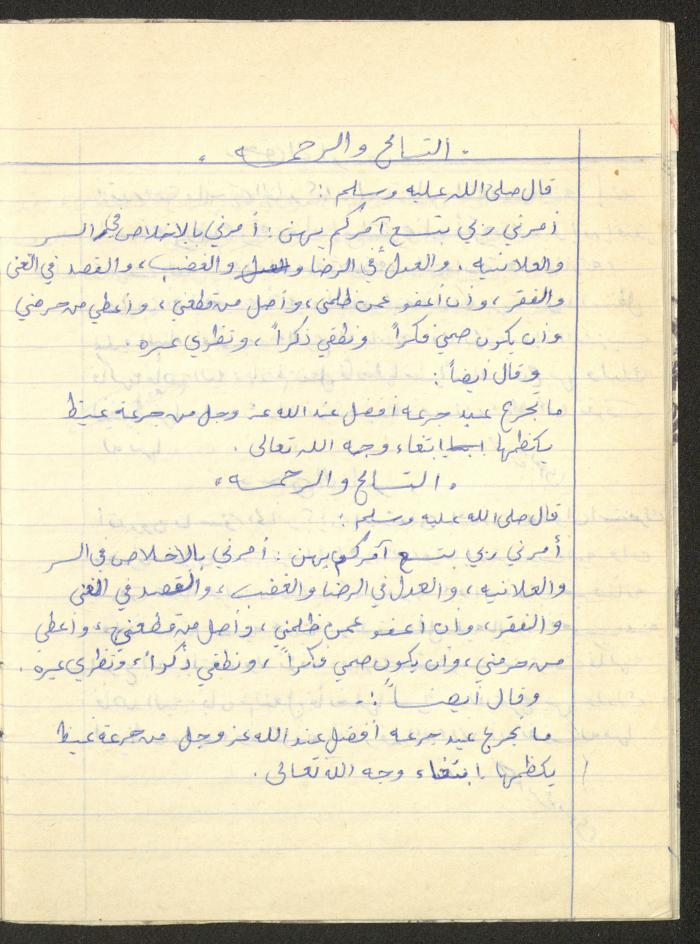 . التسامح والرحمـــه .
قال صلى الله عليه وسلم :
أمرني ربي بتسع آمركم بهن : أمرني بالاخلاص في السر
والعلانيه ، والعدل في الرضا والغضب ، والقصد في الغنى
والفقر ، وأن أعفو عمن ظلمني ، وأصل من قطعني ، وأعطي من حرمني
وأن يكون صمتي فكراً ونطقي ذكراً ، ونظري عبره
وقال أيضاً :
ما تجرع عبد جرعه أفضل عند الله عز وجل من جرعة غيظ
يكظمها ابتغاء وجه الله تعالى .
. التسامح والرحمـــه .
قال صلى الله عليه وسلم :
أمرني ربي بتسع آمركم بهن : أمرني بالاخلاص في السر
والعلانيه ، والعدل في الرضا والغضب ، والقصد في الغنى
والفقر ، وأن أعفو عمن ظلمني ، وأصل من قطعني ، وأعطي
من حرمني ، وأن يكون صمتي فكراً ، ونطقي ذكراً ، ونظري عبره .
وقال أيضـــاً :
ما تجرع عبد جرعه أفضل عند الله عز وجل من جرعة غيظ
يكظمها ابتغاء وجه الله تعالى .